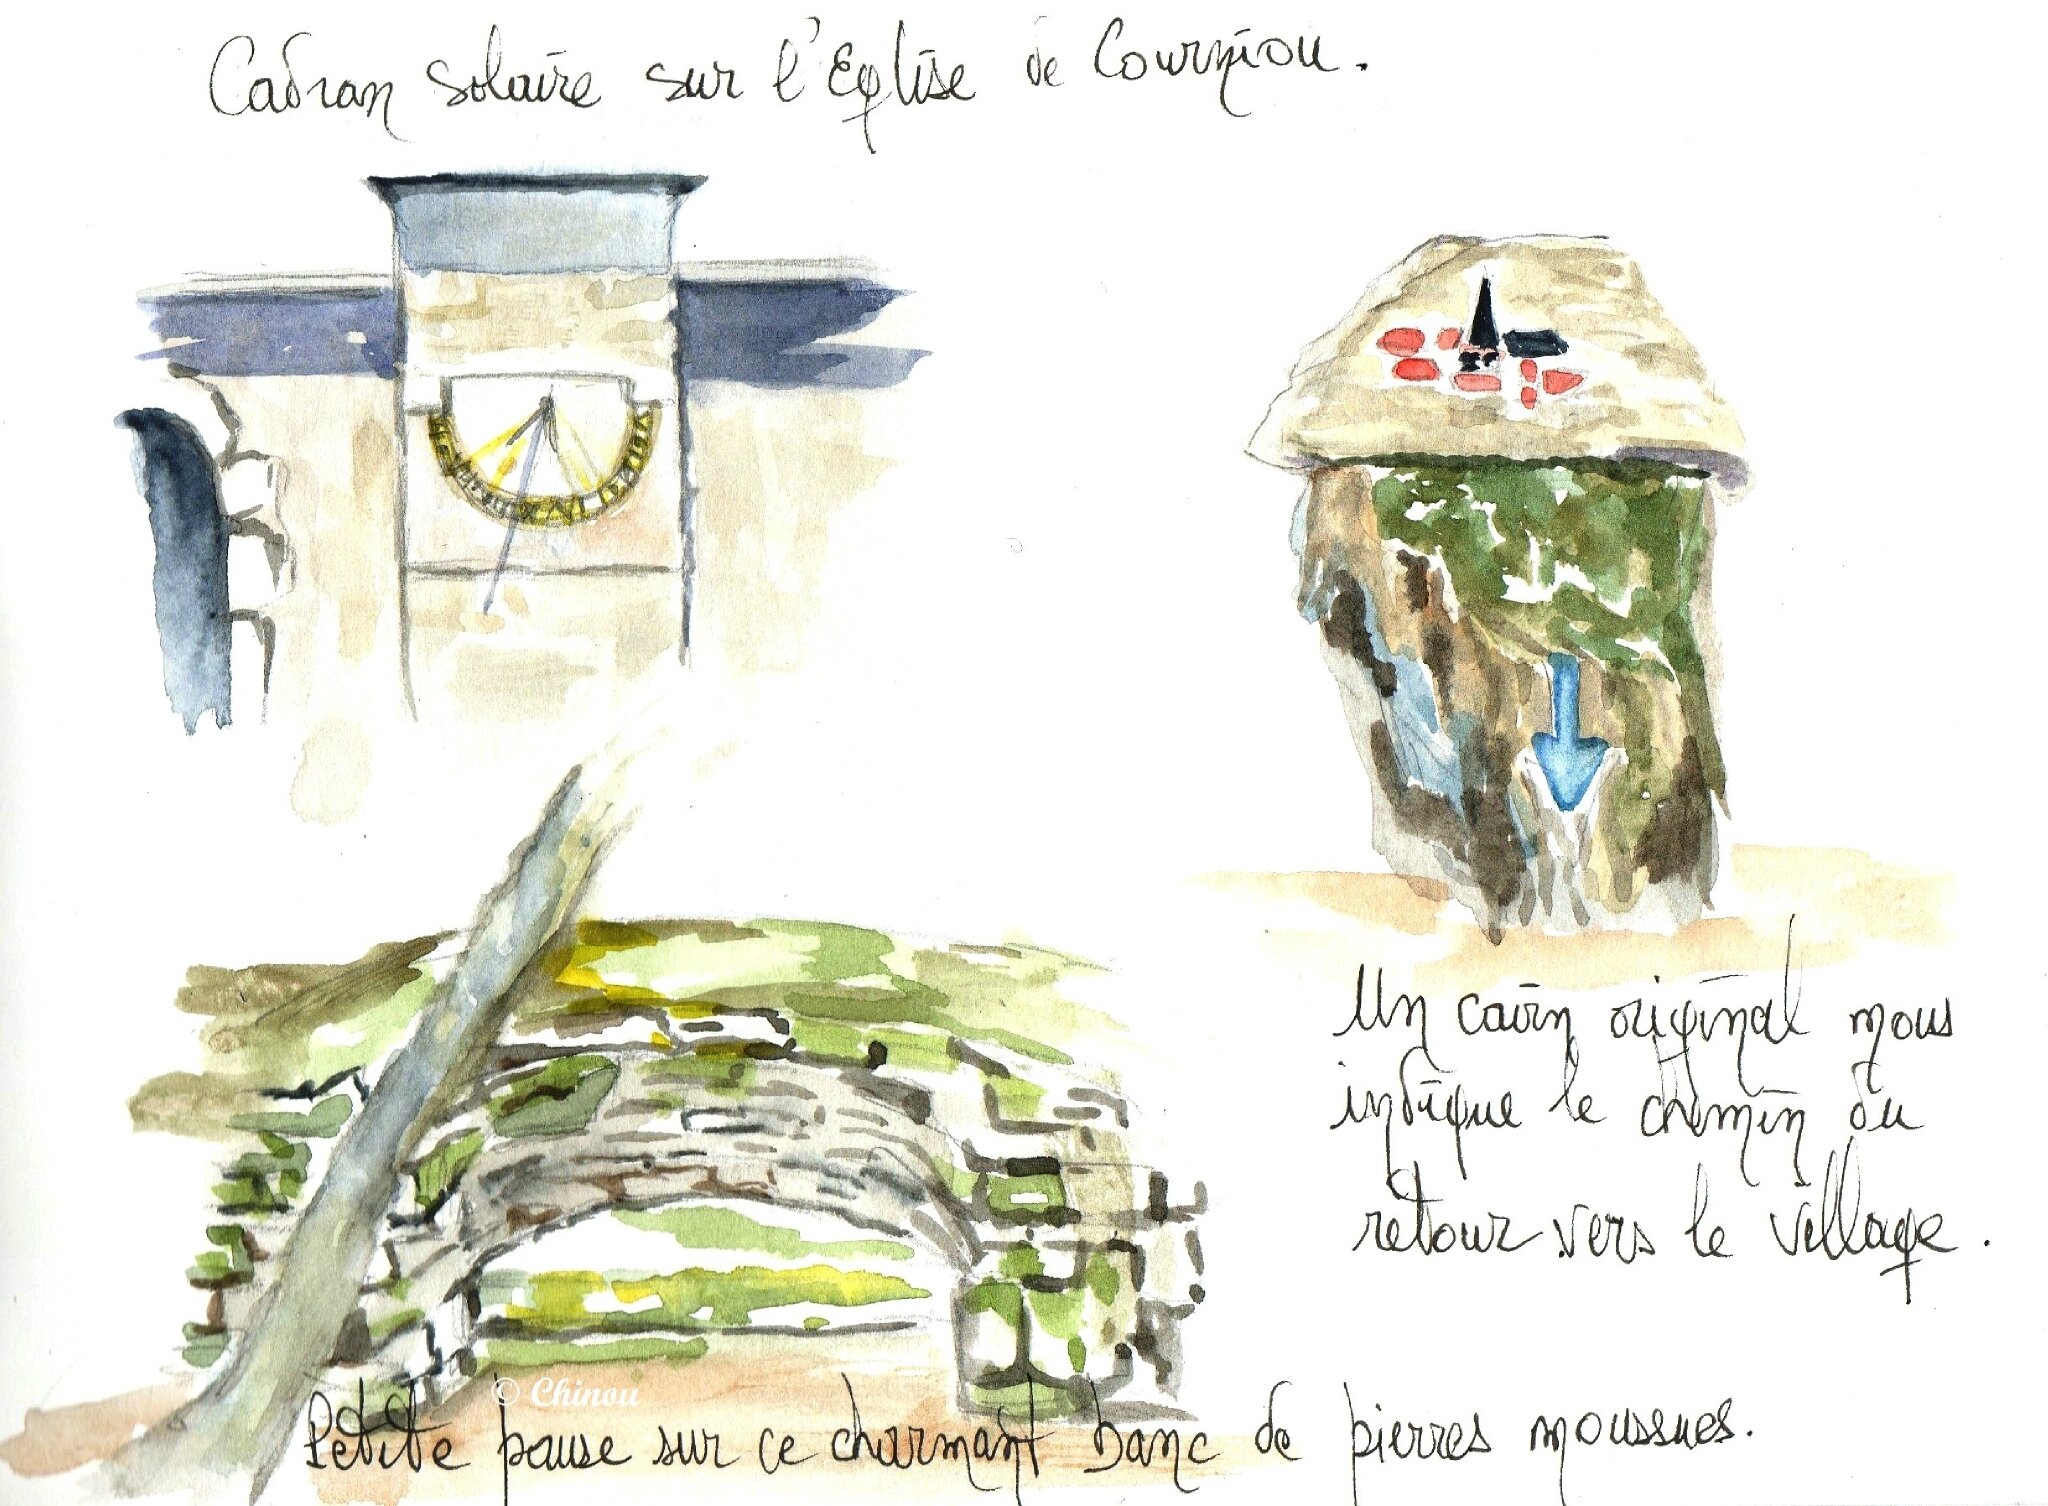 Cadran solaire sur l'Eglise de Courniou.
Un cairn original nous
indique le chemin du
retour vers le village.
© Chinou
Petite pause sur ce charmant banc de pierres moussues.